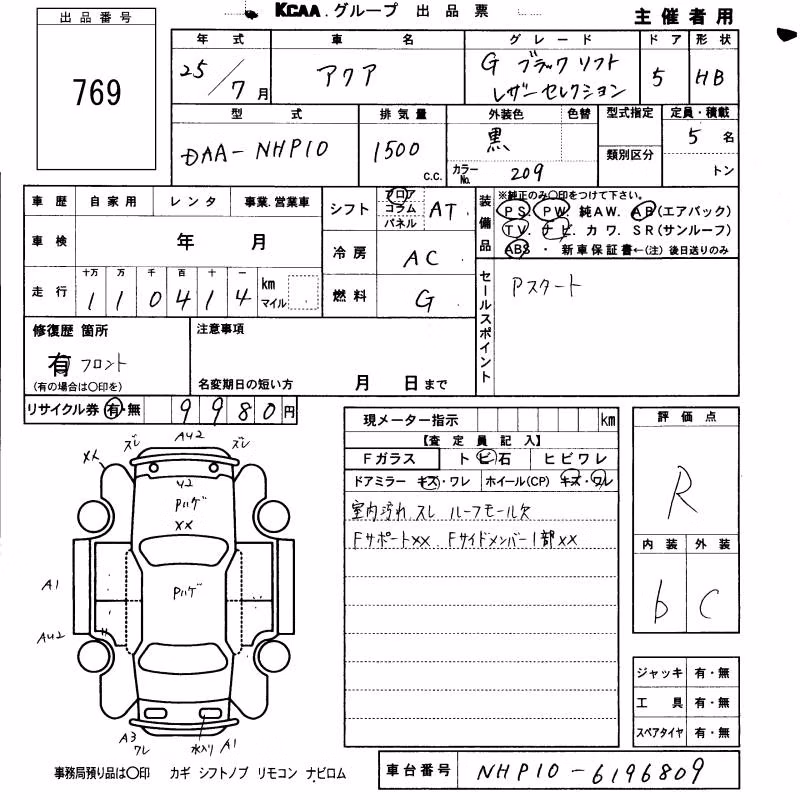 KCAA.グループ 出品票
主催者用
出品番号
769
年式 車名 グレード ドア 形状
25/7月 アクア G ブラックソフト
レザーセレクション 5 HB
型式 排気量 外装色 色替 型式指定 定員・積載
DAA-NHP10 1500 c.c. 黒 類別区分 5名
カラーNo. 209 トン
車歴 自家用 レンタ 事業.営業車
シフト フロア コラム パネル AT
装備品 ※純正のみ〇印をつけて下さい。
PS. PW. 純AW. AB(エアバック)
TV. ナビ. カワ. SR(サンルーフ)
ABS ・ 新車保証書←(注) 後日送りのみ
車検 年 月
冷房 AC
走行 十万 万 千 百 十 一 km マイル
110414
燃料 G
セールスポイント Pスタート
修復歴 箇所
有 フロント
(有の場合は〇印を)
注意事項
名変期日の短い方 月 日まで
リサイクル券 有・無 9980円
現メーター指示 km
【査定員記入】
Fガラス トビ石 ヒビワレ
ドアミラー キズ・ワレ ホイール(CP) キズ・ワレ
室内汚れ スレ ルーフモール欠
Fサポート×× Fサイドメンバー1部××
評価点
R
内装 外装
b C
ズレ AU2 ズレ
××
U2
Pハゲ
××
Pハゲ
A1
AU2
A3
ワレ
水入り A1
ジャッキ 有・無
工具 有・無
スペアタイヤ 有・無
事務局預り品は〇印 カギ シフトノブ リモコン ナビロム
車台番号 NHP10-6196809